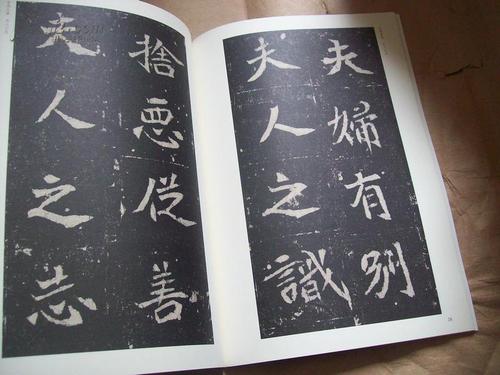 夫婦有別
夫人之識
捨惡從善
夫人之志